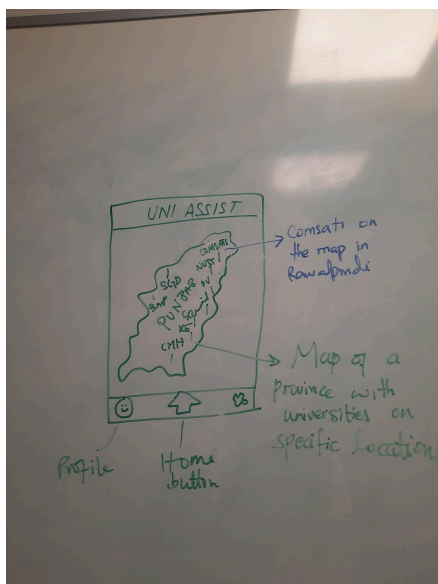 UNI ASSIST
COMSATS
NUST
SGD
PU
PUNJAB
KE
CMH
Comsats on
the map in
Rawalpindi
Map of a
province with
universities on
specific location
Profile
Home
button